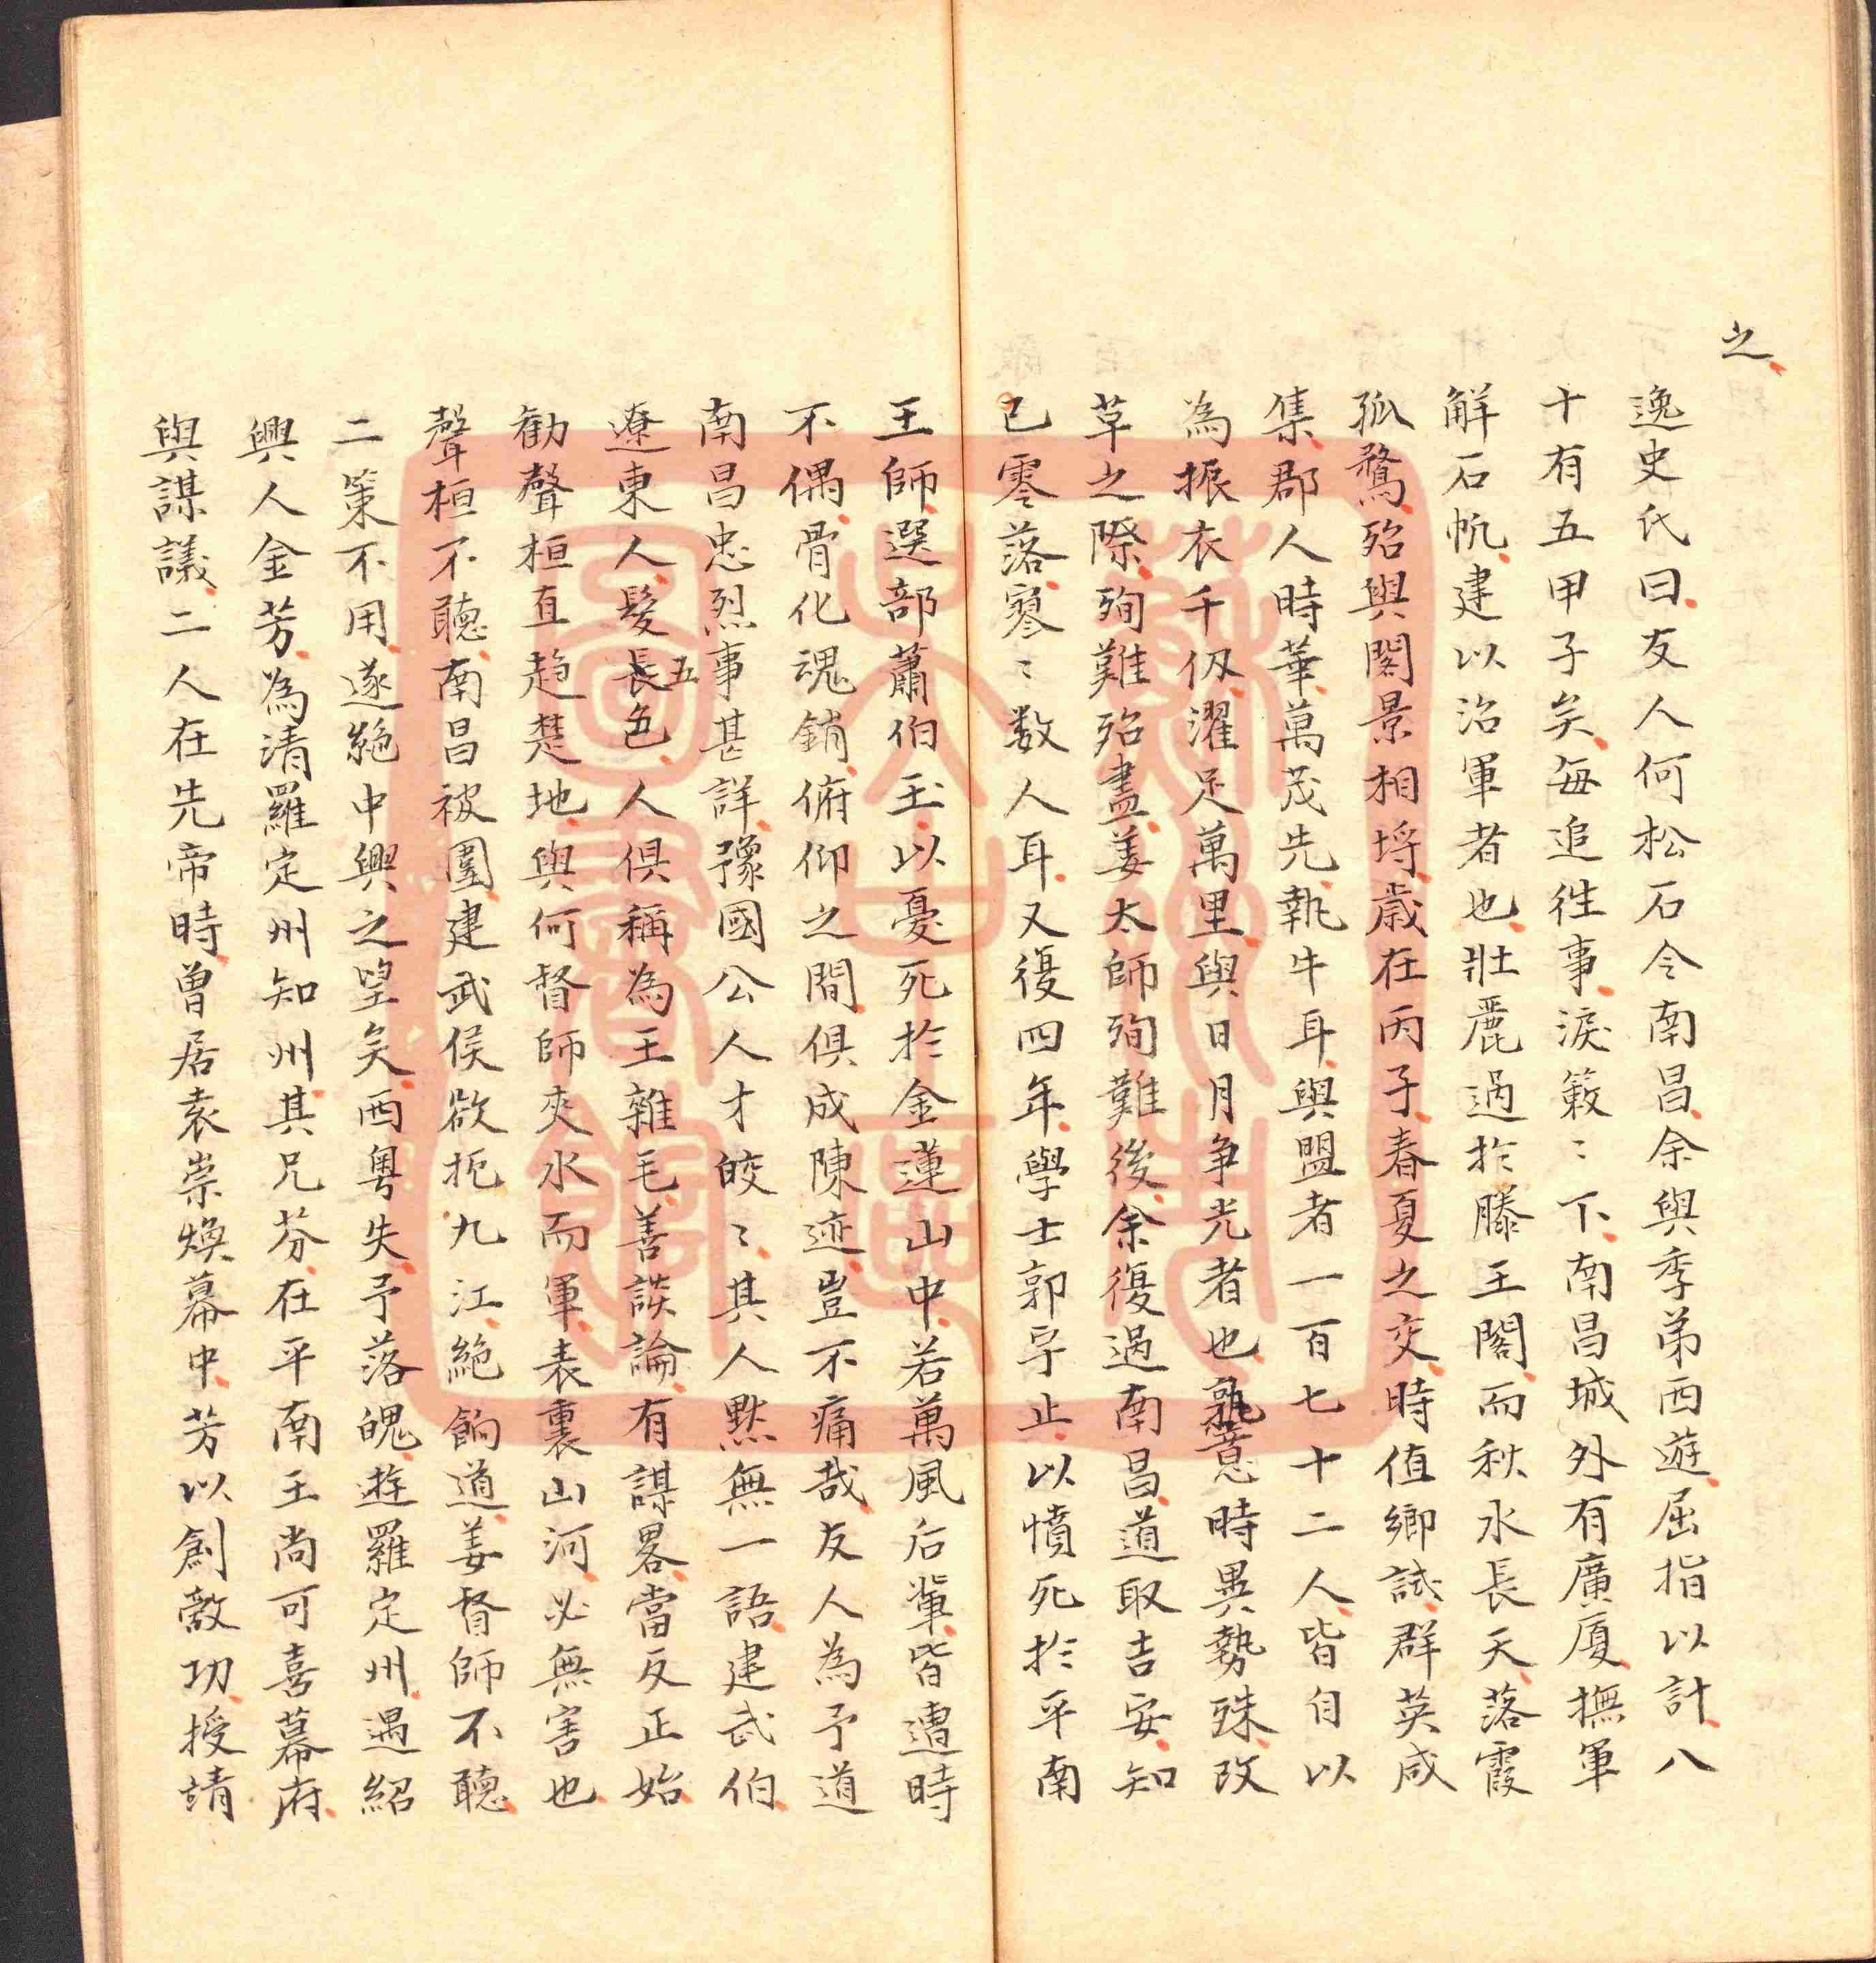 之
逸史氏曰友人何松石令南昌余與季弟西遊屈指以計八
十有五甲子矣每追徃事淚簌〻下南昌城外有廣厦撫軍
解石帆建以治軍者也壯麗過於滕王閣而秋水長天落霞
孤鶩殆與閣景相埒歲在丙子春夏之交時值鄉試群英咸
集郡人時華萬茂先執牛耳與盟者一百七十二人皆自以
為振衣千仭濯足萬里與日月争光者也孰意時異勢殊改
草之際殉難殆盡姜太師殉難後余復過南昌道取吉安知
已零落寥〻数人耳又復四年學士郭孚止以憤死於平南
王師選部蕭伯玉以憂死於金蓮山中若萬風后軰皆遭時
不偶骨化魂銷俯仰之間俱成陳迹豈不痛哉友人為予道
南昌忠烈事甚詳豫國公人才皎〻其人黙無一語建武伯
遼東人髮長五色人俱稱為王雜毛善談論有謀畧當反正始
勸聲桓直趋楚地與何督師夾水而軍表裏山河必無害也
聲桓不聽南昌被圍建武侯欲扼九江絕餉道姜督師不聽
二策不用遂絕中興之望矣西粤失予落魄遊羅定州遇紹
興人金芳為清羅定州知州其兄芬在平南王尚可喜幕府
與謀議二人在先帝時曾居袁崇煥幕中芳以創敵功授靖